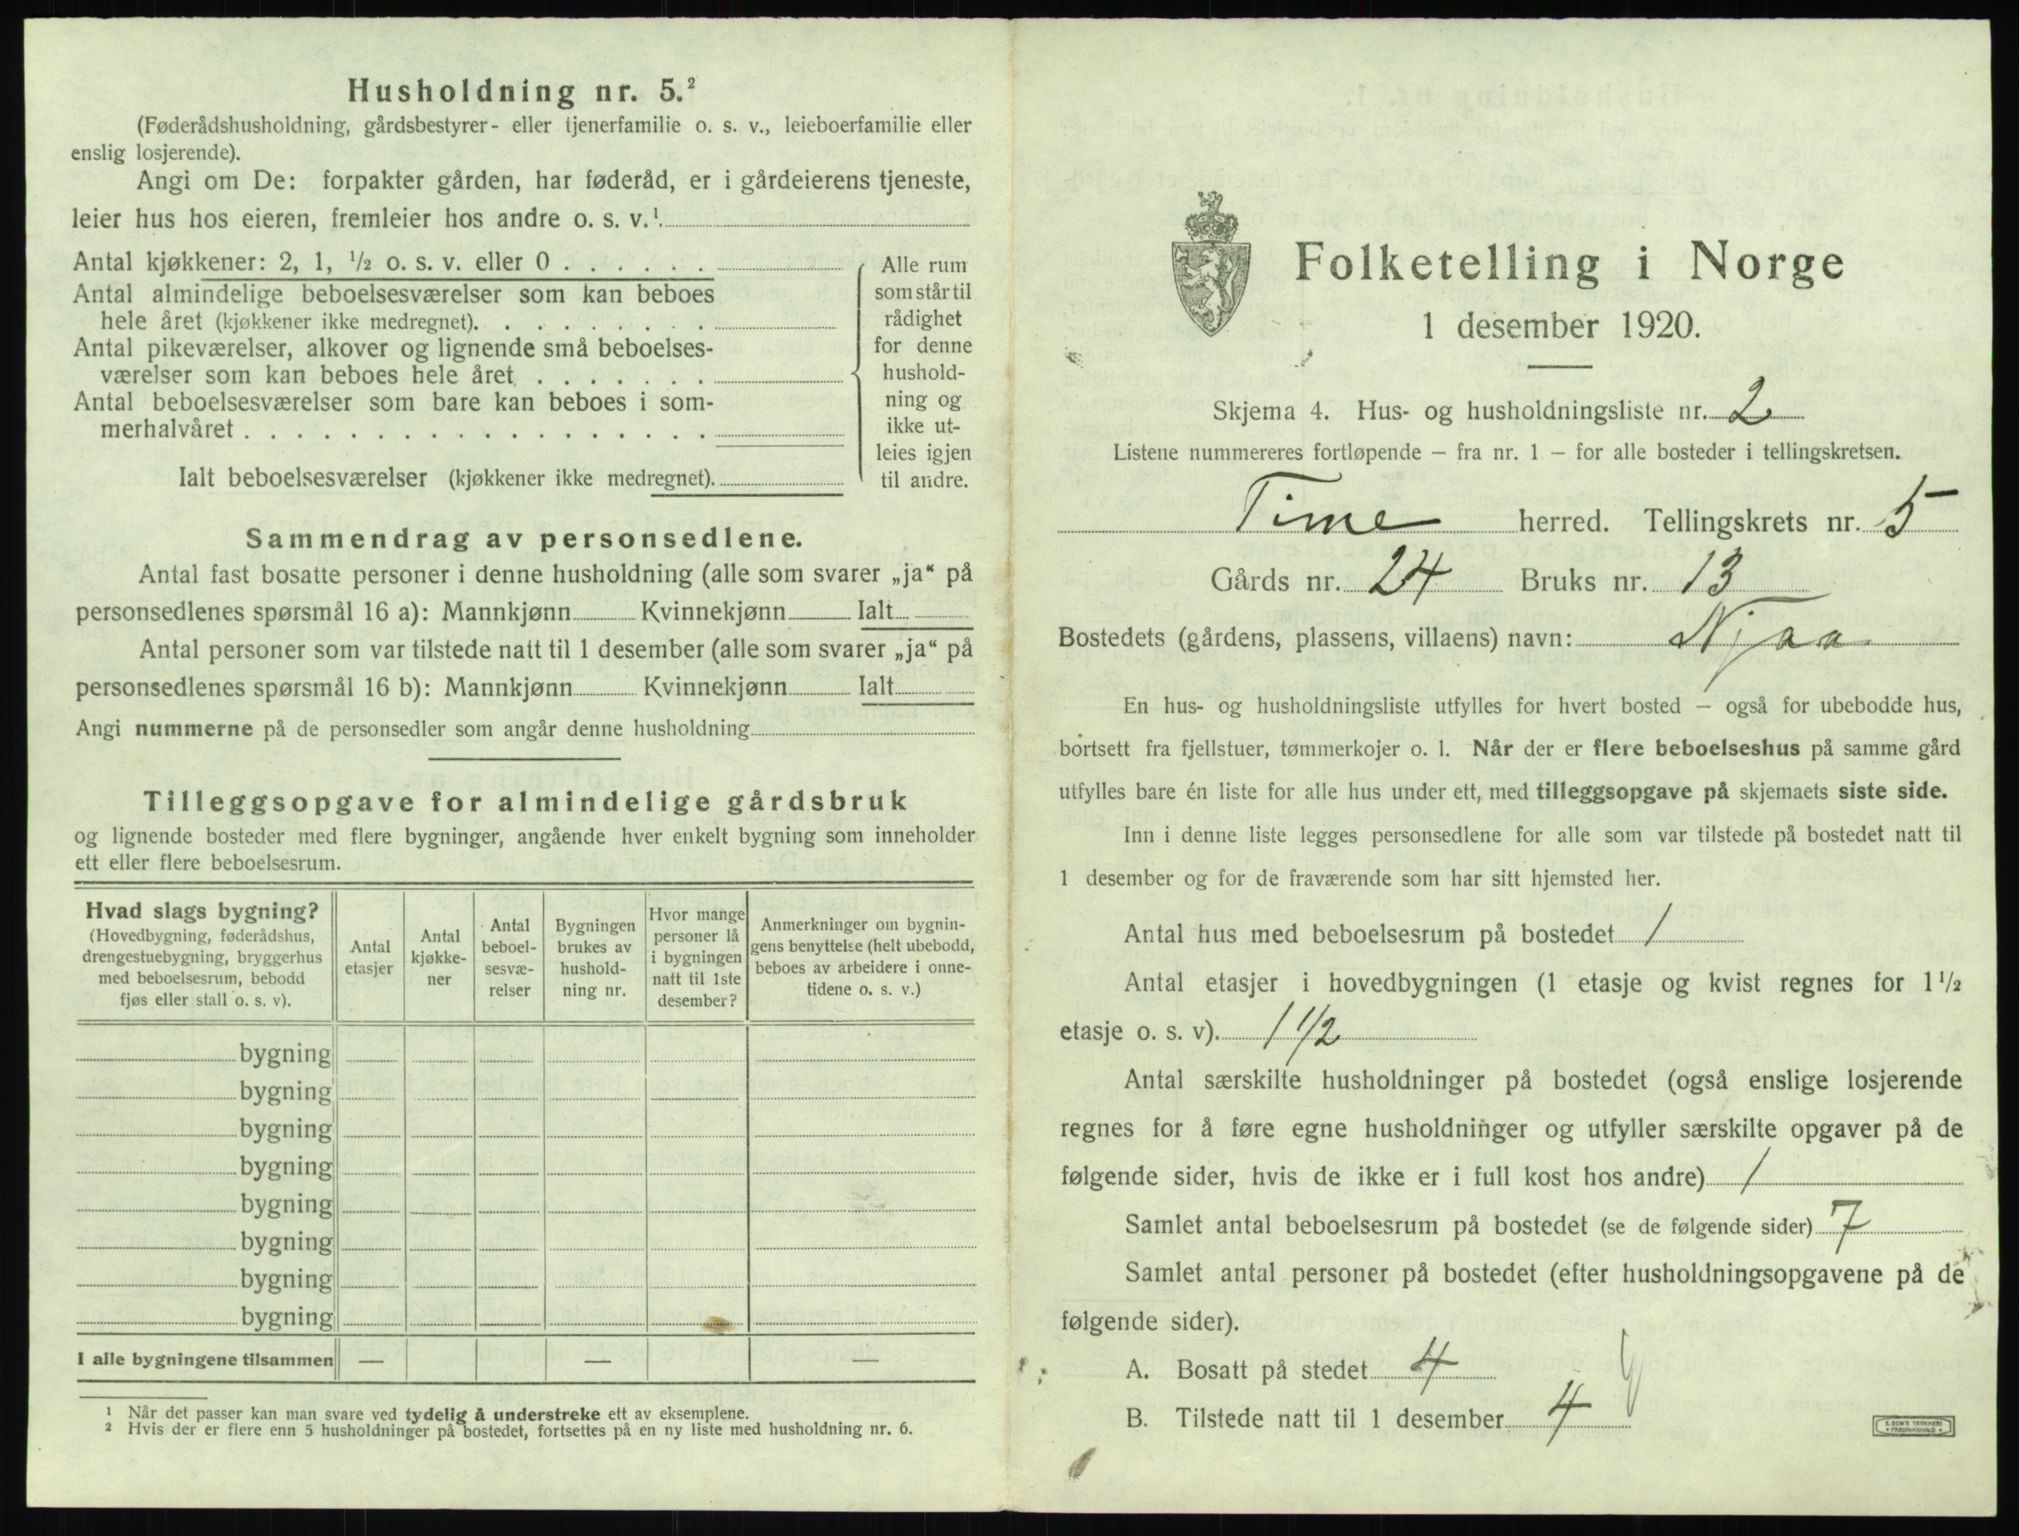 Husholdning nr. 5.²
(Føderådshusholdning, gårdsbestyrer- eller tjenerfamilie o. s. v., leieboerfamilie eller
enslig losjerende).
Angi om De: forpakter gården, har føderåd, er i gårdeierens tjeneste,
leier hus hos eieren, fremleier hos andre o. s. v.¹.
Antal kjøkkener: 2, 1, ½ o. s. v. eller 0 . . . . . .
Antal almindelige beboelsesværelser som kan beboes
hele året (kjøkkener ikke medregnet). . . . . . . . .
Antal pikeværelser, alkover og lignende små beboelses-
værelser som kan beboes hele året . . . . . . .
Antal beboelsesværelser som bare kan beboes i som-
merhalvåret . . . . . . . . . . . . . . . . . .
Ialt beboelsesværelser (kjøkkener ikke medregnet).
Alle rum
som står til
rådighet
for denne
hushold-
ning og
ikke ut-
leies igjen
til andre.
Sammendrag av personsedlene.
Antal fast bosatte personer i denne husholdning (alle som svarer „ja“ på
personsedlenes spørsmål 16 a): Mannkjønn Kvinnekjønn Ialt
Antal personer som var tilstede natt til 1 desember (alle som svarer „ja“ på
personsedlenes spørsmål 16 b): Mannkjønn Kvinnekjønn Ialt
Angi nummerne på de personsedler som angår denne husholdning
Tilleggsopgave for almindelige gårdsbruk
og lignende bosteder med flere bygninger, angående hver enkelt bygning som inneholder
ett eller flere beboelsesrum.
Hvad slags bygning?
(Hovedbygning, føderådshus,
drengestuebygning, bryggerhus
med beboelsesrum, bebodd
fjøs eller stall o. s. v).
Antal
etasjer
Antal
kjøkke-
ner
Antal
beboel-
sesvæ-
relser
Bygningen
brukes av
hushold-
ning nr.
Hvor mange
personer lå
i bygningen
natt til 1ste
desember?
Anmerkninger om bygnin-
gens benyttelse (helt ubebodd,
beboes av arbeidere i onne-
tidene o. s. v.)
bygning
bygning
bygning
bygning
bygning
bygning
bygning
bygning
I alle bygningene tilsammen — — —
¹ Når det passer kan man svare ved tydelig å understreke ett av eksemplene.
² Hvis der er flere enn 5 husholdninger på bostedet, fortsettes på en ny liste med husholdning nr. 6.
Folketelling i Norge
1 desember 1920.
Skjema 4. Hus- og husholdningsliste nr. 2
Listene nummereres fortløpende – fra nr. 1 – for alle bosteder i tellingskretsen.
Time herred. Tellingskrets nr. 5
Gårds nr. 24 Bruks nr. 13
Bostedets (gårdens, plassens, villaens) navn: Njaa
En hus- og husholdningsliste utfylles for hvert bosted – også for ubebodde hus,
bortsett fra fjellstuer, tømmerkojer o. l. Når der er flere beboelseshus på samme gård
utfylles bare én liste for alle hus under ett, med tilleggsopgave på skjemaets siste side.
Inn i denne liste legges personsedlene for alle som var tilstede på bostedet natt til
1 desember og for de fraværende som har sitt hjemsted her.
Antal hus med beboelsesrum på bostedet 1
Antal etasjer i hovedbygningen (1 etasje og kvist regnes for 1½
etasje o. s. v). 1 1/2
Antal særskilte husholdninger på bostedet (også enslige losjerende
regnes for å føre egne husholdninger og utfyller særskilte opgaver på de
følgende sider, hvis de ikke er i full kost hos andre) 1
Samlet antal beboelsesrum på bostedet (se de følgende sider) 7
Samlet antal personer på bostedet (efter husholdningsopgavene på de
følgende sider).
A. Bosatt på stedet 4
B. Tilstede natt til 1 desember 4
E. SEM'S TRYKKERI
FREDRIKSHALD